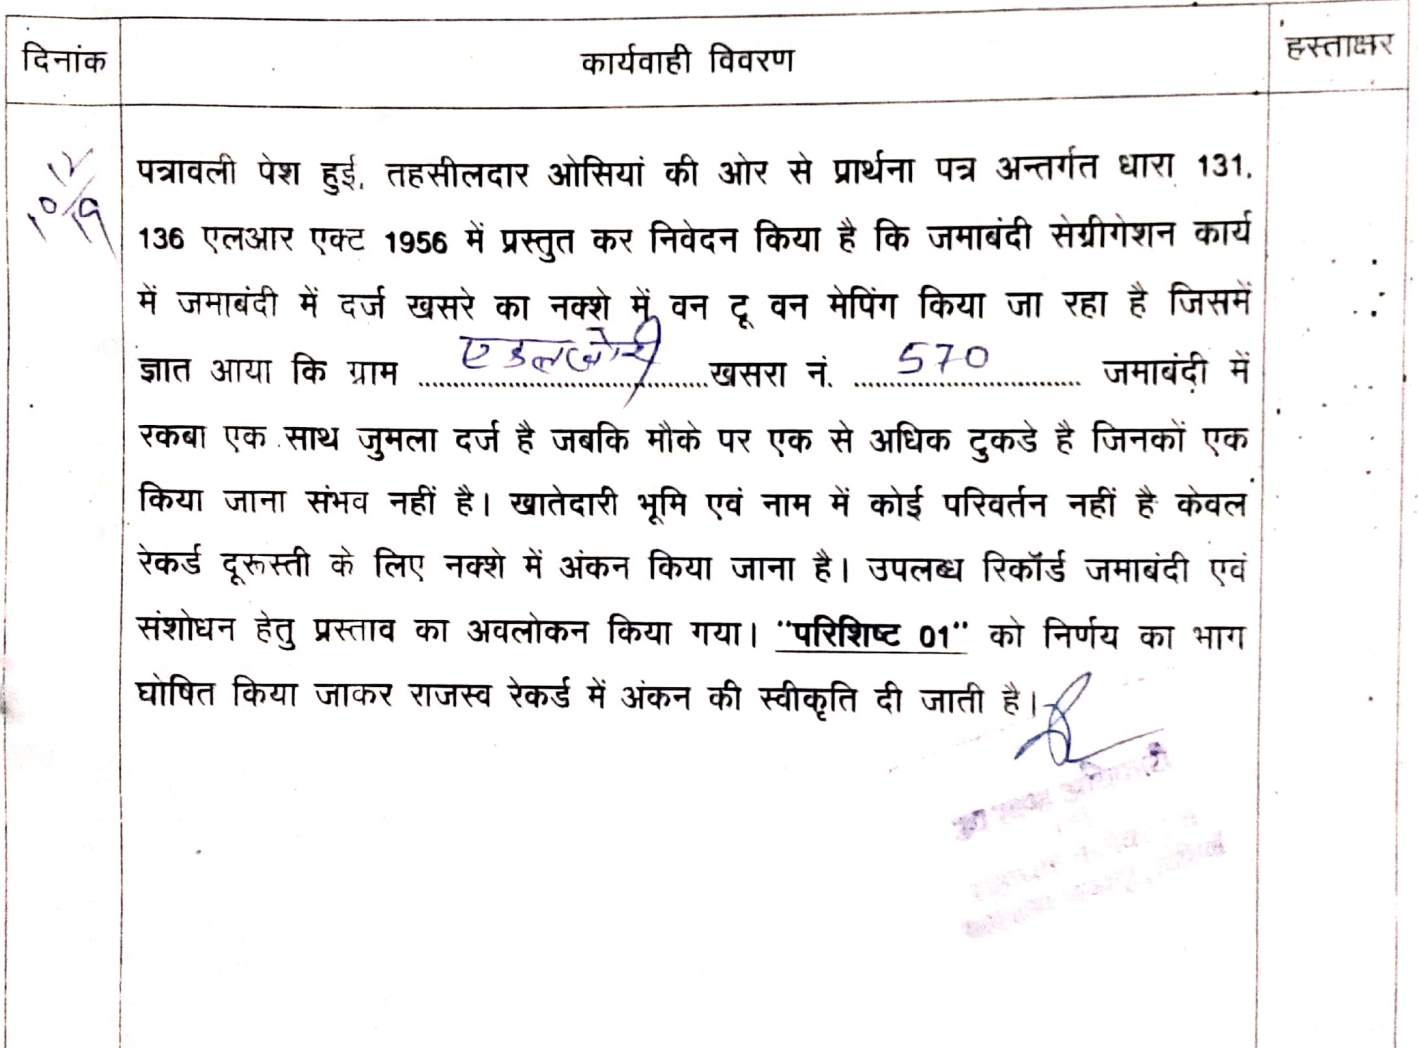 दिनांक
कार्यवाही विवरण
हस्ताक्षर
पत्रावली पेश हुई, तहसीलदार ओसियां की ओर से प्रार्थना पत्र अन्तर्गत धारा 131,
136 एलआर एक्ट 1956 में प्रस्तुत कर निवेदन किया है कि जमाबंदी सेग्रीगेशन कार्य
में जमाबंदी में दर्ज खसरे का नक्शे में वन टू वन मेपिंग किया जा रहा है जिसमें
ज्ञात आया कि ग्राम ........ खसरा नं. 570 जमाबंदी में
रकबा एक साथ जुमला दर्ज है जबकि मौके पर एक से अधिक टुकडे है जिनकों एक
किया जाना संभव नहीं है। खातेदारी भूमि एवं नाम में कोई परिवर्तन नहीं है केवल
रेकर्ड दूरूस्ती के लिए नक्शे में अंकन किया जाना है। उपलब्ध रिकॉर्ड जमाबंदी एवं
संशोधन हेतु प्रस्ताव का अवलोकन किया गया। "परिशिष्ट 01" को निर्णय का भाग
घोषित किया जाकर राजस्व रेकर्ड में अंकन की स्वीकृति दी जाती है।